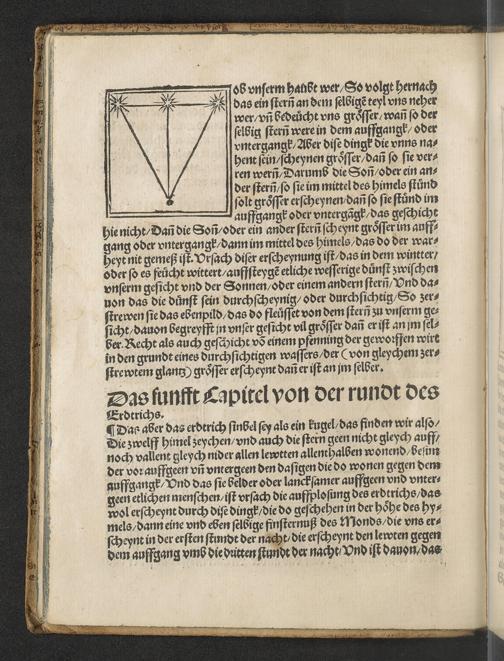 ob vnserm haubt wer/So volgt hernach
das ein stern̄ an dem selbigē teyl vns neher
wer/vn̄ bedeücht vns grösser/wan̄ so der
selbig stern̄ were in dem auffgangk/oder
vntergangk/Aber dise dingk die vnns na-
hent sein/scheynen grösser/dan̄ so sie ver-
ren wern̄/Darumb die Son̄/oder ein an-
der stern̄/so sie im mittel des himels stünd
solt grösser erscheynen/dan̄ so sie stünd im
auffgangk oder vntergāgk/das geschicht
hie nicht/Dan̄ die Son̄/oder ein ander stern̄ scheynt grösser im auff-
gang oder vntergangk/dann im mittel des himels/das do der war-
heyt nit gemeß ist. Vrsach diser erscheynung ist/das in dem wintter/
oder so es feücht wittert/auffsteygē etliche wesserige dünst zwischen
vnserm gesicht vnd der Sonnen/oder einem andern stern̄/Vnd da-
uon das die dünst sein durchscheynig/oder durchsichtig/So zer-
strewen sie das ebenpild/das do fleüsset von dem stern̄ zu vnserm ge-
sicht/dauon begreyfft in vnser gesicht vil grösser dan̄ er ist an jm sel-
ber. Recht als auch geschicht vō einem pfenning der geworffen wirt
in den grundt eines durchsichtigen wassers/der (von gleychem zer-
strewtem glantz) grösser erscheynt dan̄ er ist an jm selber.
Das funfft Capitel von der rundt des
Erdtrichs.
¶Das aber das erdtrich sinbel sey als ein kugel/das finden wir also/
Die zwelff himel zeychen/vnd auch die stern geen nicht gleych auff/
noch vallent gleych nider allen lewtten allenthalben wonend/besun
der vor auffgeen vn̄ vntergeen den dasigen die do wonen gegen dem
auffgangk/Vnd das sie belder oder lancksamer auffgeen vnd vnter-
geen etlichen menschen/ist vrsach die auffplosung des erdtrichs/das
wol erscheynt durch dise dingk/die do geschehen in der höhe des hy-
mels/dann eine vnd eben selbige finsternuß des Monds/die vns er-
scheynt in der ersten stundt der nacht/die erscheynt den lewten gegen
dem auffgang vmb die dritten stundt der nacht/Vnd ist dauon/das